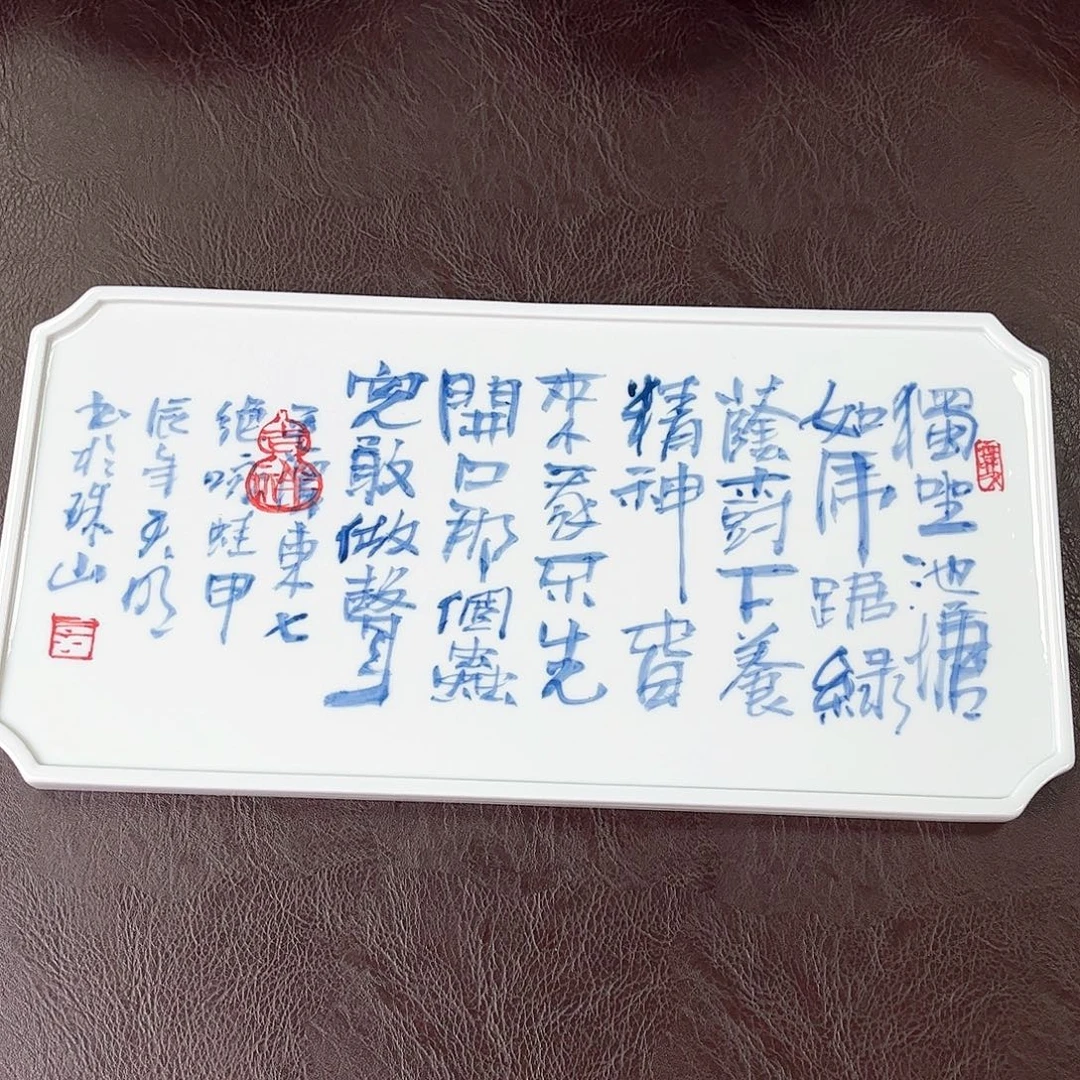 獨坐池塘
如虎踞綠
蔭樹下養
精神
春
來不我不先
開口那個蟲
兒敢做聲
毛澤東七
絕咏蛙甲
辰年天明
書於珠山
吉祥